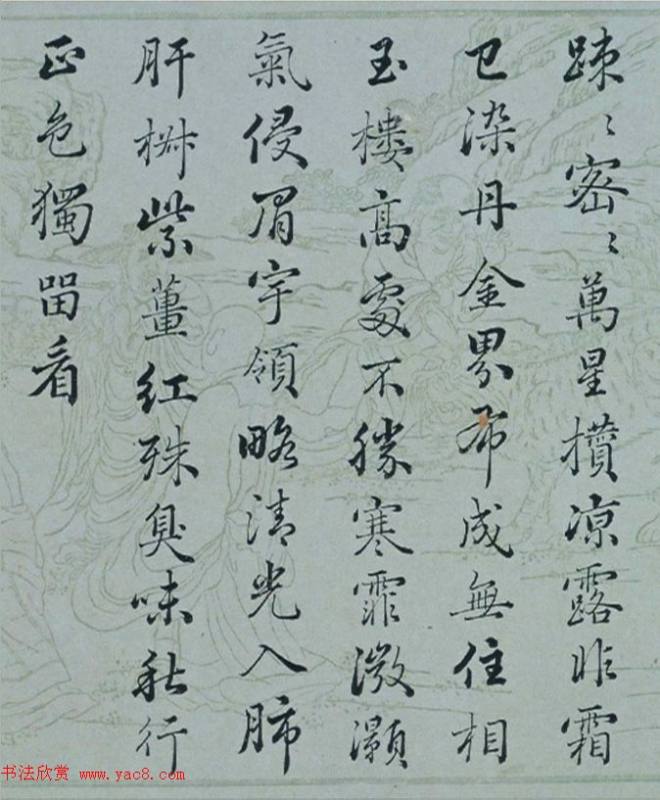 踈〻密〻萬星攢凉露昨霜
已染丹金界布成無住相
玉樓高處不勝寒霏微灝
氣侵眉宇領略清光入肺
肝椒紫薑紅殊臭味秋行
正色獨畱看
书法欣赏 www.yac8.com